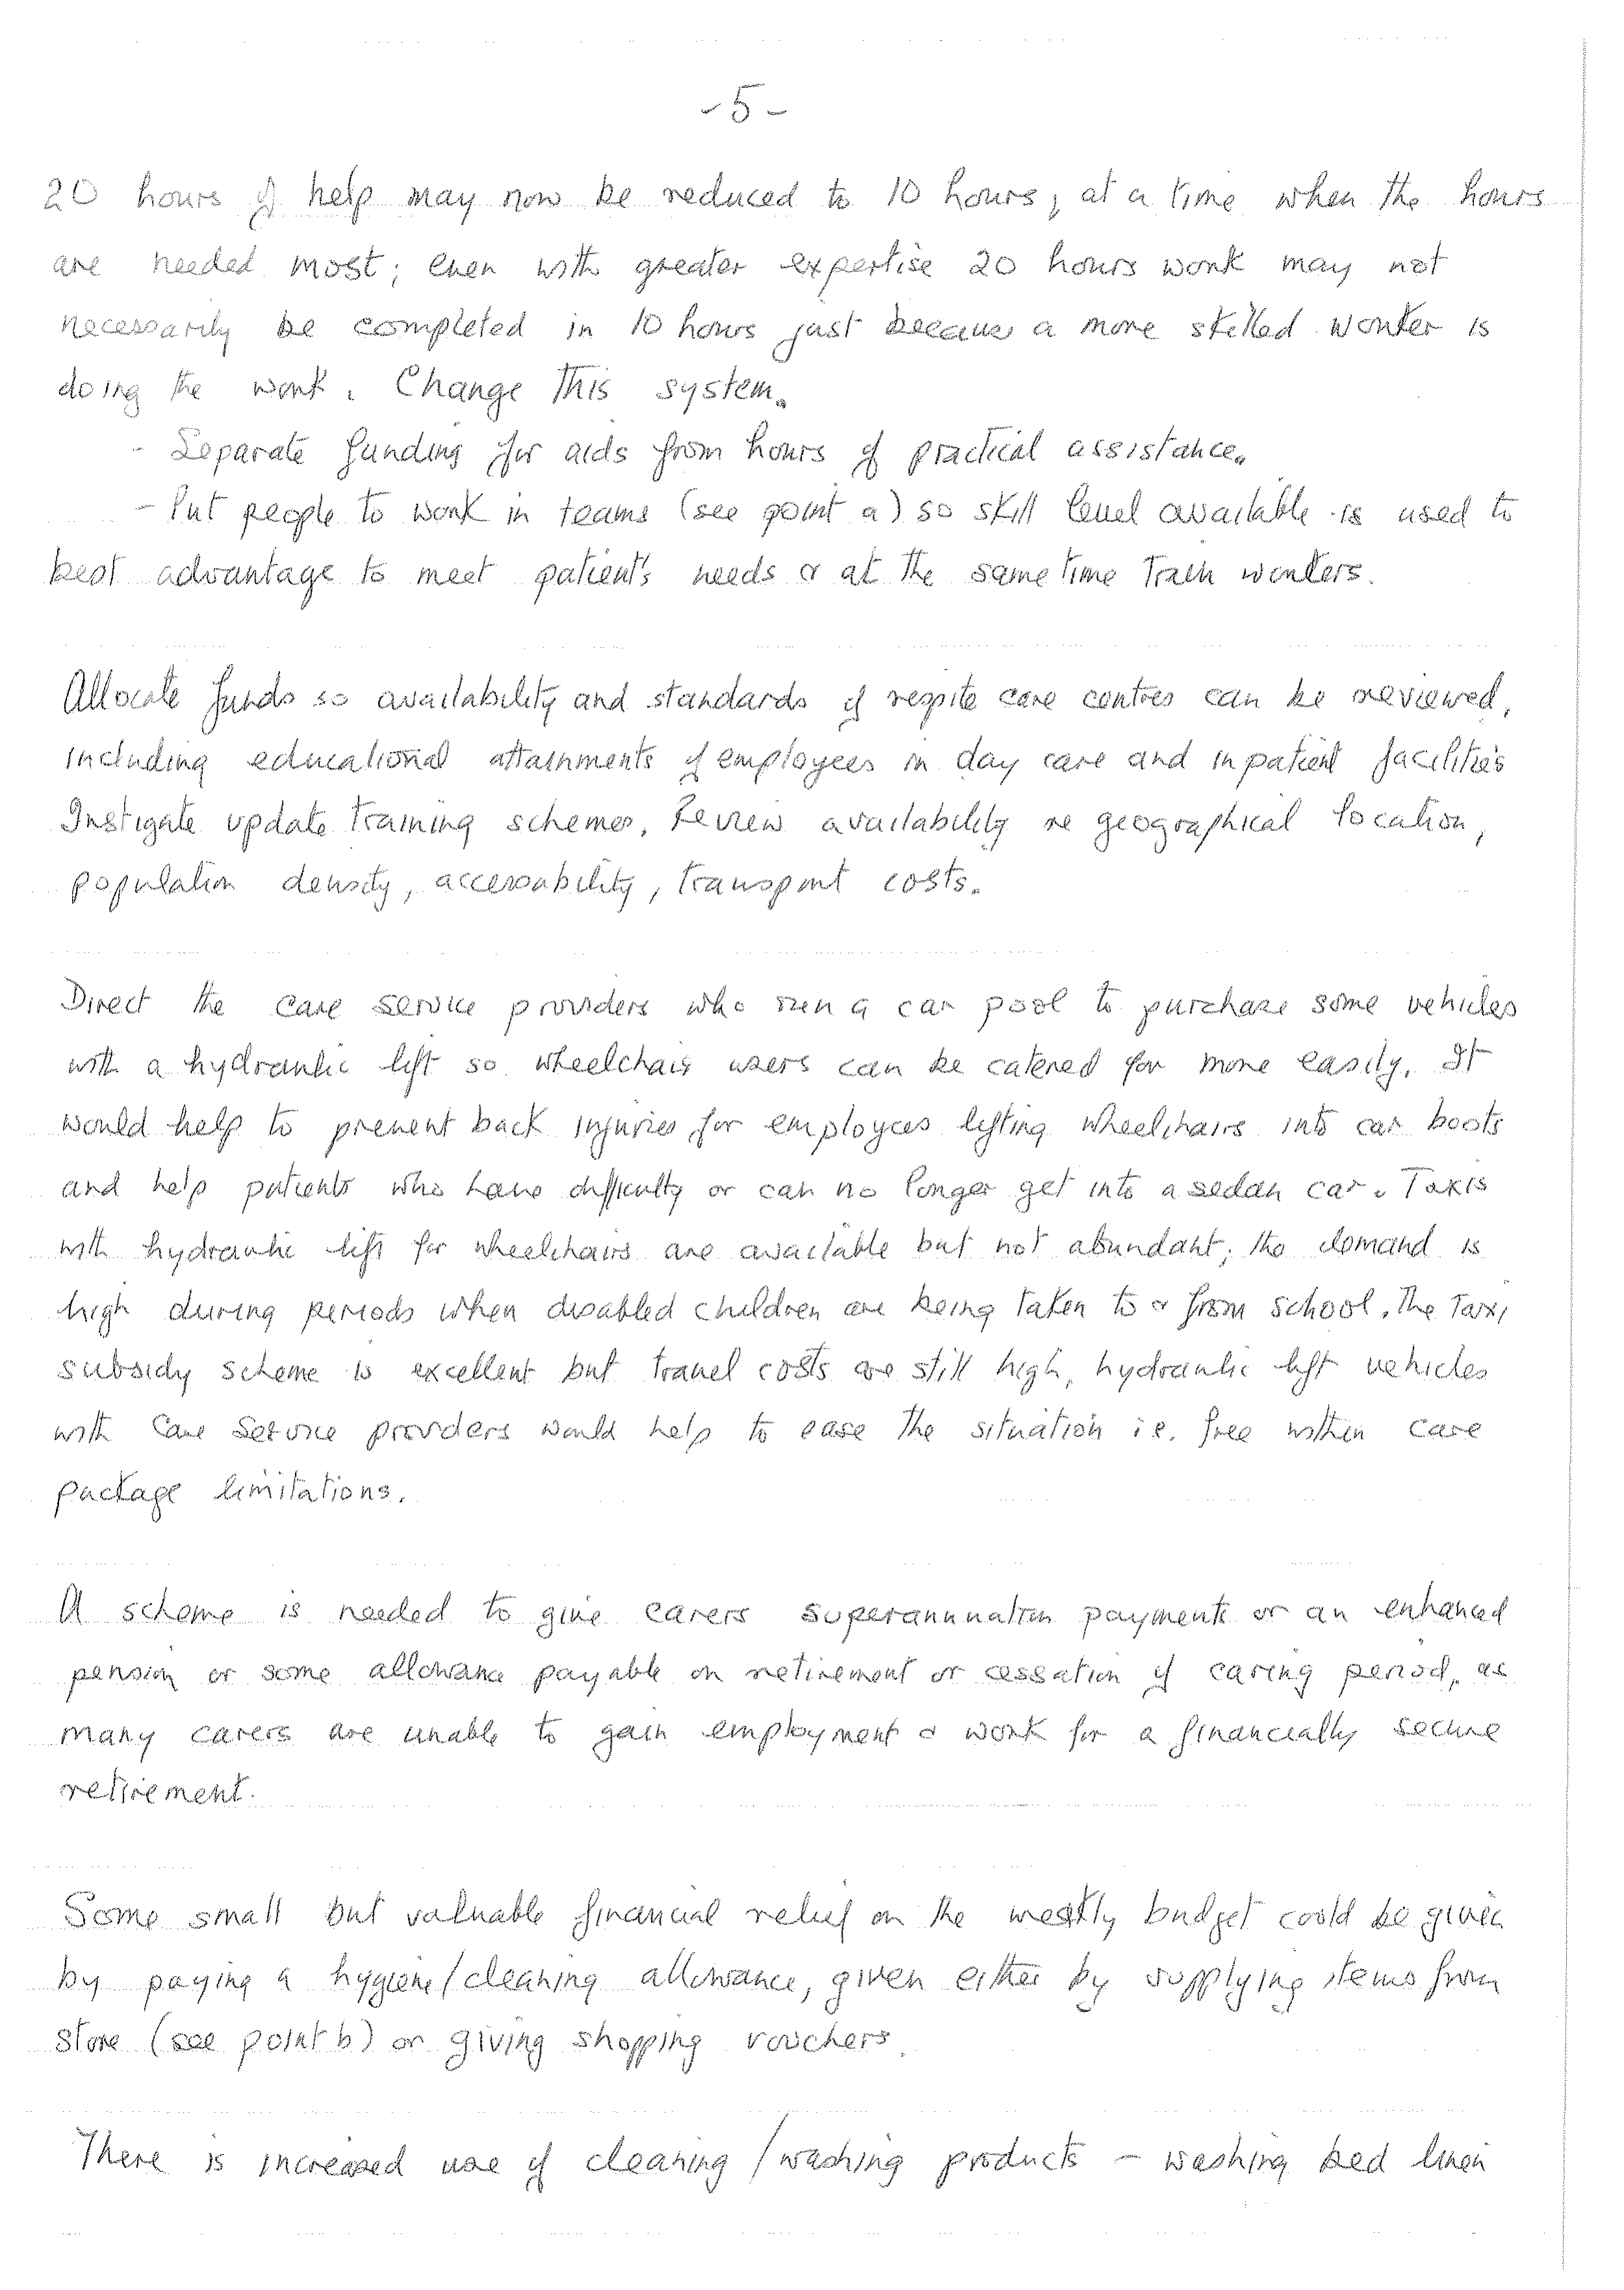 -5-
20 hours of help may now be reduced to 10 hours, at a time when the hours
are needed most; even with greater expertise 20 hours work may not
necessarily be completed in 10 hours just because a more skilled worker is
doing the work. Change this system.
- Separate funding for aids from hours of practical assistance.
- Put people to work in teams (see point a) so skill level available is used to
best advantage to meet patient's needs & at the same time train workers.
Allocate funds so availability and standards of respite care centres can be reviewed,
including educational attainments of employees in day care and inpatient facilities
Instigate update training schemes, Review availability re geographical location,
population density, accessability, transport costs.
Direct the care service providers who run a car pool to purchase some vehicles
with a hydraulic lift so wheelchair users can be catered for more easily. It
would help to prevent back injuries for employees lifting wheelchairs into car boots
and help patients who have difficulty or can no longer get into a sedan car. Taxis
with hydraulic lift for wheelchairs are available but not abundant; the demand is
high during periods when disabled children are being taken to & from school. The Taxi
subsidy scheme is excellent but travel costs are still high, hydraulic lift vehicles
with Care Service providers would help to ease the situation i.e. free within care
package limitations.
A scheme is needed to give carers superannunation payments or an enhanced
pension or some allowance payable on retirement or cessation of caring period, as
many carers are unable to gain employment & work for a financially secure
retirement.
Some small but valuable financial relief on the weekly budget could be given
by paying a hygiene/cleaning allowance, given either by supplying items from
store (see point b) or giving shopping vouchers.
There is increased use of cleaning/washing products - washing bed linen